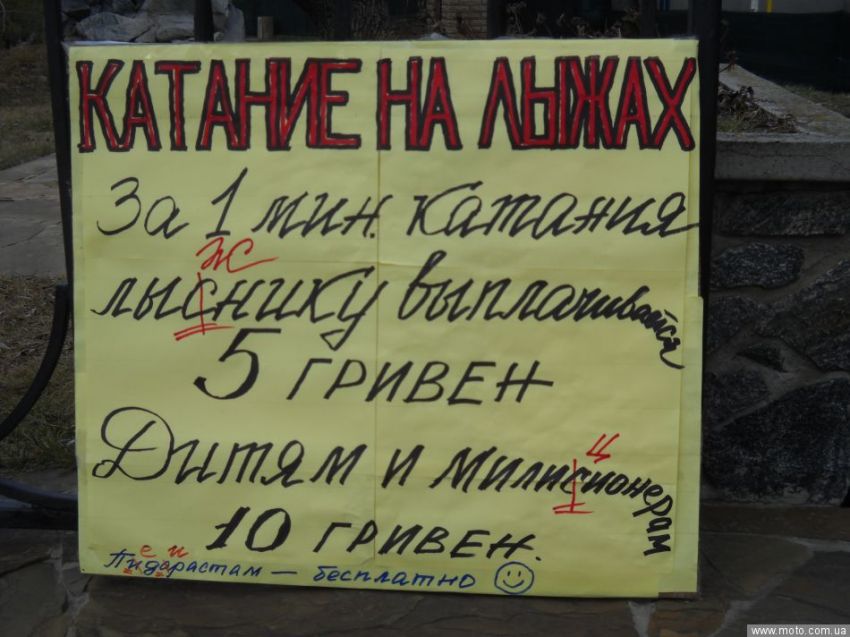 КАТАНИЕ НА ЛЫЖАХ
За 1 мин. катания
ж
лыснику выплачивается
5 ГРИВЕН
ц
Дитям и милисионерам
10 ГРИВЕН.
е и
Пидарастам - бесплатно
www.moto.com.ua